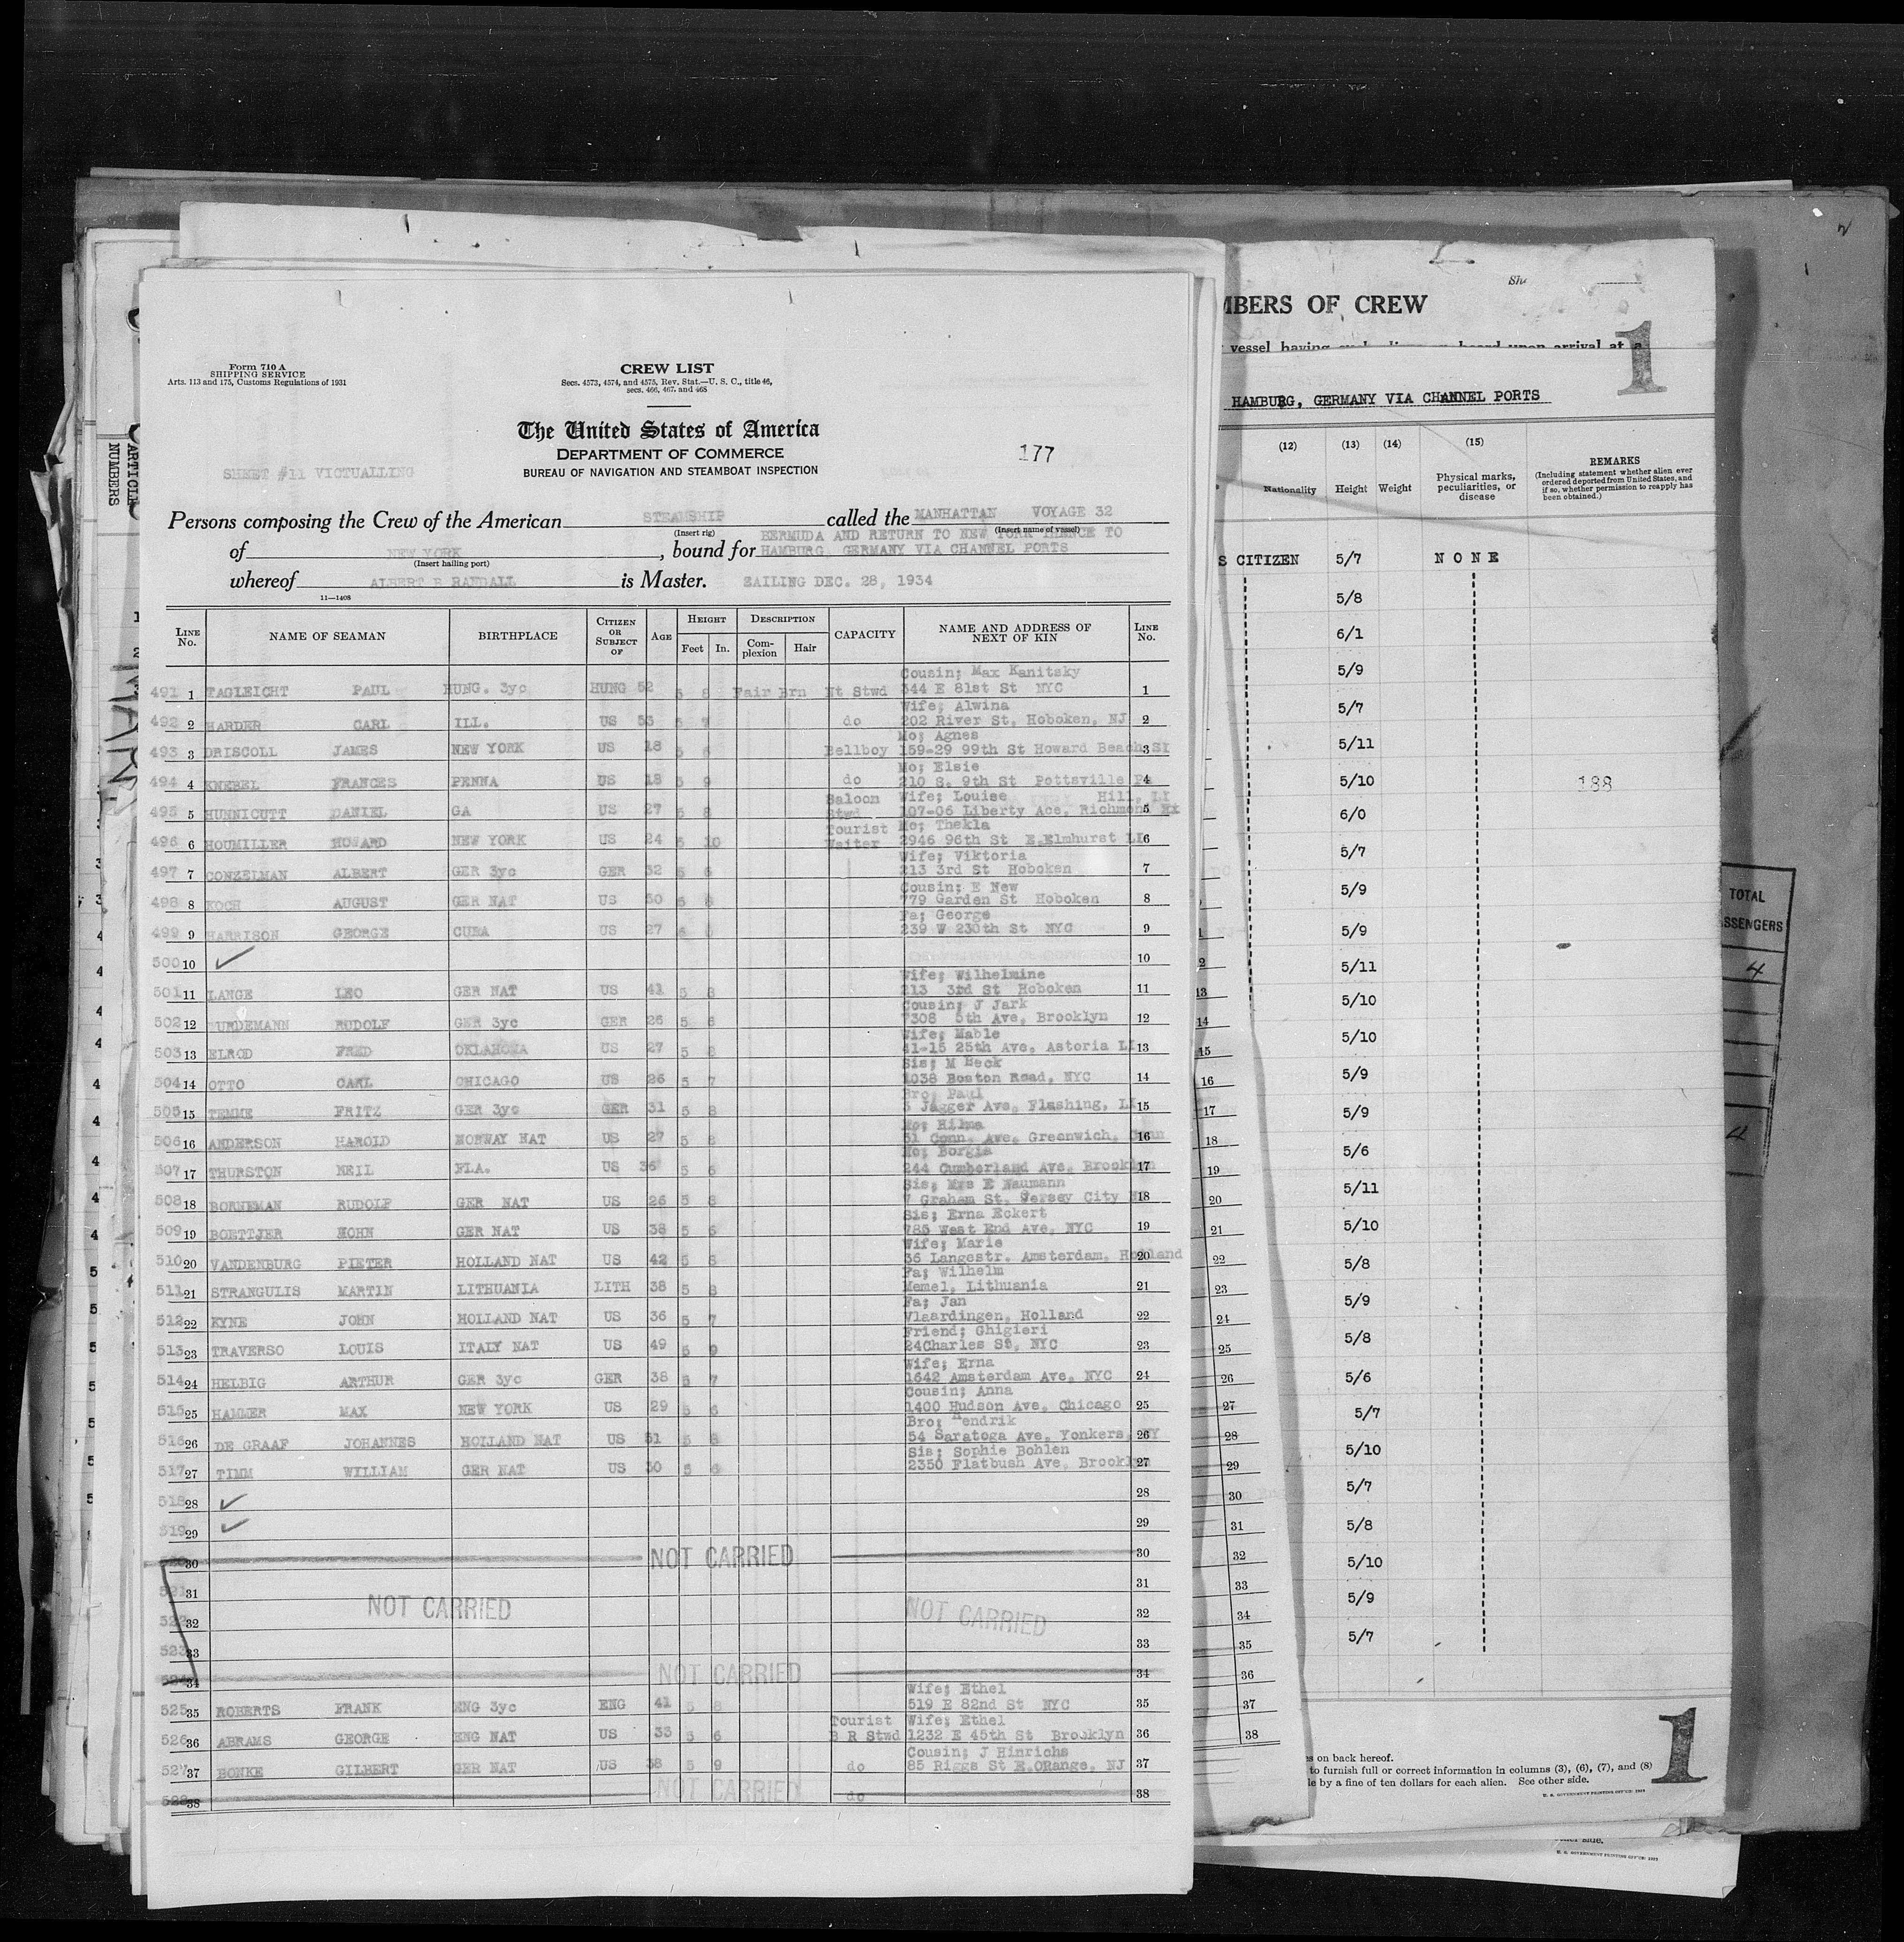 Form 710 A
SHIPPING SERVICE
Arts. 113 and 175, Customs Regulations of 1931
CREW LIST
Secs. 4573, 4574, and 4575, Rev. Stat.—U. S. C., title 46,
secs. 466, 467, and 468
The United States of America
DEPARTMENT OF COMMERCE
BUREAU OF NAVIGATION AND STEAMBOAT INSPECTION
177
SHEET #11 VICTUALLING
Persons composing the Crew of the American STEAMSHIP called the MANHATTAN VOYAGE 32
(Insert rig) (Insert name of vessel)
BERMUDA AND RETURN TO NEW YORK THENCE TO
of NEW YORK, bound for HAMBURG, GERMANY VIA CHANNEL PORTS
(Insert hailing port)
whereof ALBERT B RANDALL is Master. SAILING DEC. 28, 1934
11—1408
LINE No. NAME OF SEAMAN BIRTHPLACE CITIZEN OR SUBJECT OF AGE HEIGHT Feet In. DESCRIPTION Complexion Hair CAPACITY NAME AND ADDRESS OF NEXT OF KIN LINE No.
Cousin; Max Kanitsky
491 1 TAGLEICHT PAUL HUNG. 3yc HUNG 52 5 8 Fair Brn Nt Stwd 344 E 81st St NYC 1
Wife; Alwina
492 2 HARDER CARL ILL. US 53 5 7 do 202 River St, Hoboken, NJ 2
Mo; Agnes
493 3 DRISCOLL JAMES NEW YORK US 18 5 6 Bellboy 159-29 99th St Howard Beach 3
Mo; Elsie
494 4 KNEBEL FRANCES PENNA US 18 5 9 do 210 S. 9th St Pottsville Pa 4
Saloon Wife; Louise Hill, LI
495 5 HUNNICUTT DANIEL GA US 27 5 8 Stwd 107-06 Liberty Ace, Richmond 5
Tourist Mo; Thekla
496 6 HOUMILLER HOWARD NEW YORK US 24 5 10 Waiter 2946 96th St E.Elmhurst LI 6
Wife; Viktoria
497 7 CONZELMAN ALBERT GER 3yc GER 32 5 6 213 3rd St Hoboken 7
Cousin; E New
498 8 KOCH AUGUST GER NAT US 50 5 8 779 Garden St Hoboken 8
Fa; George
499 9 HARRISON GEORGE CUBA US 27 239 W 230th St NYC 9
500 10 ✓ 10
Wife; Wilhelmine
501 11 LANGE LEO GER NAT US 41 5 8 213 3rd St Hoboken 11
Cousin; J Jark
502 12 RUDOLF GER 3yc GER 26 5 6 7308 5th Ave, Brooklyn 12
Wife; Mable
503 13 ELROD FRED OKLAHOMA US 27 5 8 41-15 25th Ave, Astoria LI 13
Sis; M Beck
504 14 OTTO CARL CHICAGO US 26 5 7 1038 Boston Road, NYC 14
Bro; Paul
505 15 TEMME FRITZ GER 3yc GER 31 5 8 3 Jagger Ave, Flashing, LI 15
Mo; Hilma
506 16 ANDERSON HAROLD NORWAY NAT US 27 5 8 51 Conn. Ave, Greenwich, Conn 16
Mo; Borgia
507 17 THURSTON NEIL FLA. US 36 5 6 244 Cumberland Ave, Brooklyn 17
Sis; Mrs E Naumann
508 18 BORNEMAN RUDOLF GER NAT US 26 5 8 7 Graham St, Jersey City 18
Sis; Erna Eckert
509 19 BOETTJER NOHN GER NAT US 38 5 6 785 West End Ave, NYC 19
Wife; Marie
510 20 VANDENBURG PIETER HOLLAND NAT US 42 5 8 36 Langestr. Amsterdam, Holland 20
Fa; Wilhelm
511 21 STRANGULIS MARTIN LITHUANIA LITH 38 5 8 Memel, Lithuania 21
Fa; Jan
512 22 KYNE JOHN HOLLAND NAT US 36 5 7 Vlaardingen, Holland 22
Friend; Ghigieri
513 23 TRAVERSO LOUIS ITALY NAT US 49 5 9 24Charles St, NYC 23
Wife; Erna
514 24 HELBIG ARTHUR GER 3yc GER 38 5 7 1642 Amsterdam Ave, NYC 24
Cousin; Anna
515 25 HAMMER MAX NEW YORK US 29 5 6 1400 Hudson Ave, Chicago 25
Bro; Hendrik
516 26 DE GRAAF JOHANNES HOLLAND NAT US 51 5 8 54 Saratoga Ave, Yonkers, NY 26
Sis; Sophie Bohlen
517 27 TIMM WILLIAM GER NAT US 30 5 6 2350 Flatbush Ave, Brooklyn 27
518 28 ✓ 28
519 29 ✓ 29
30 NOT CARRIED 30
521 31 31
522 32 NOT CARRIED NOT CARRIED 32
523 33 33
524 34 NOT CARRIED 34
Wife; Ethel
525 35 ROBERTS FRANK ENG 3yc ENG 41 5 8 519 E 82nd St NYC 35
Tourist Wife; Ethel
526 36 ABRAMS GEORGE ENG NAT US 33 5 6 B R Stwd 1232 E 45th St Brooklyn 36
Cousin; J Hinrichs
527 37 BONKE GILBERT GER NAT US 38 5 9 do 85 Riggs St E.ORange, NJ 37
528 38 NOT CARRIED do 38
MBERS OF CREW
1
vessel having
HAMBURG, GERMANY VIA CHANNEL PORTS
(12) (13) (14) (15)
Nationality Height Weight Physical marks, peculiarities, or disease
REMARKS
(Including statement whether alien ever ordered deported from United States, and if so, whether permission to reapply has been obtained.)
S CITIZEN 5/7 NONE
5/8
6/1
5/9
5/7
5/11
5/10 188
6/0
5/7
5/9
5/9
5/11
5/10
5/10
5/9
5/9
5/6
5/11
5/10
5/8
5/9
5/8
5/6
5/7
5/10
5/7
5/8
5/10
5/9
5/7
13
14
15
16
17
18
19
20
21
22
23
24
25
26
27
28
29
30
31
32
33
34
35
36
37
38
s on back hereof.
to furnish full or correct information in columns (3), (6), (7), and (8)
le by a fine of ten dollars for each alien. See other side.
U. S. GOVERNMENT PRINTING OFFICE
1
TOTAL
SSENGERS
4
4
ARTICLE
NUMBERS